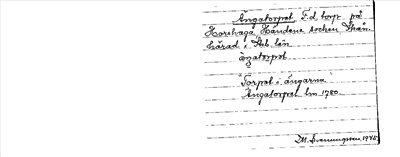 Ängatorpet, F.d. torp på
Horshaga Händene socken Skån.
härad i Skb. län
ängatorpet
"Torpet i ängarna"
Ängatorpet lm 1780.
1945